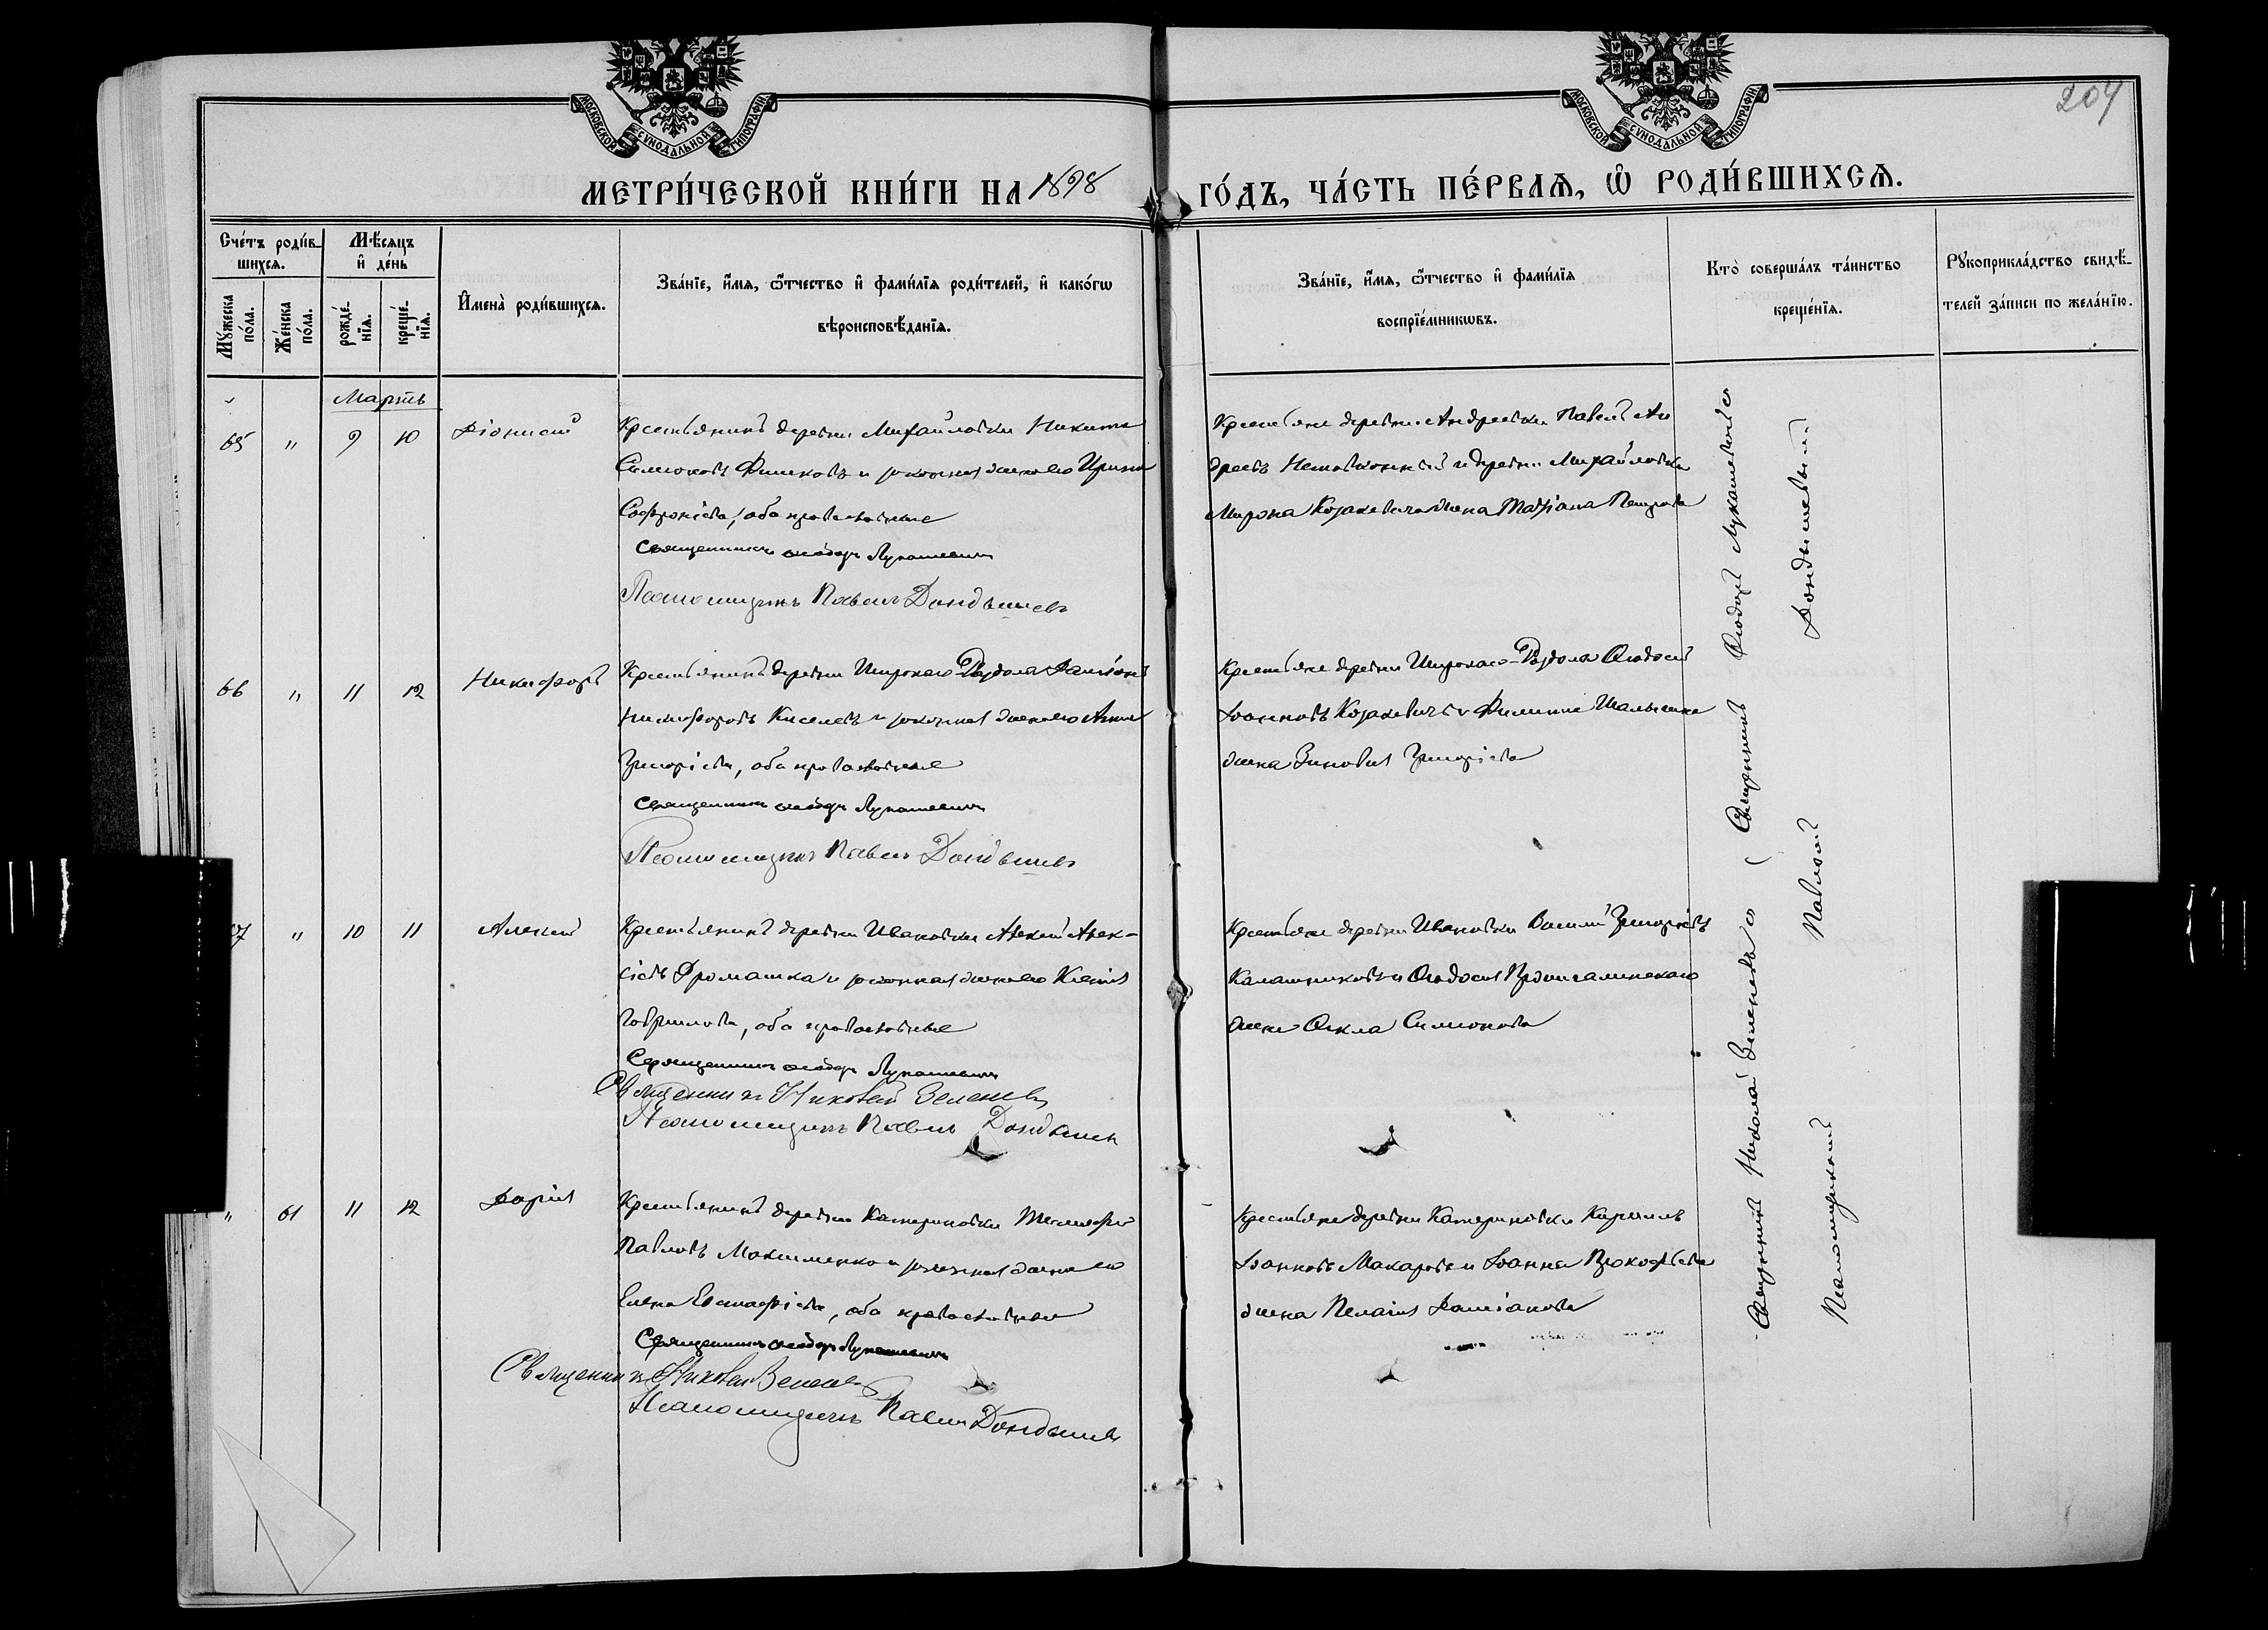 МОСКОВСКОЙ СѴНОДАЛЬНОЙ ТИПОГРАФІИ
МОСКОВСКОЙ СѴНОДАЛЬНОЙ ТИПОГРАФІИ
204
МЕТРИ́ЧЕСКОЙ КНИ́ГИ НА 1898 ГО́ДЪ, ЧА́СТЬ ПЕ́РВАѦ, Ѡ҆ РОДИ́ВШИХСѦ.
Сче́тъ роди́в-
шихсѧ.
Му́жеска
по́ла.
Же́нска
по́ла.
Мѣ́сѧцъ
и҆ де́нь
рожде́-
нїѧ.
креще́-
нїѧ.
И҆мена̀ роди́вшихсѧ.
Зва́нїе, и҆́мѧ, ѻ҆́тчество и҆ фами́лїѧ роди́телей, и҆ како́гѡ
вѣроисповѣ́данїѧ.
Зва́нїе, и҆́мѧ, ѻ҆́тчество и҆ фами́лїѧ
воспрїе́мникѡвъ.
Кто̀ соверша́лъ та́инство
креще́нїѧ.
Рꙋкоприкла́дство свидѣ́-
телей за́писи по жела́нїю.
Мартъ
65 " 9 10 Діонисій
Крестьянинъ деревни Михайловки Никита
Симеоновъ Фишковъ и законная жена его Ирина
Софроніева, оба православные
Священникъ Ѳеодоръ Лукашевичъ
Псаломщикъ Павелъ Дондышевъ
Крестьяне деревни Андреевки Павелъ Ан
дреевъ и деревни Михайловки
Мирона Козакевича жена Татіана Петрова
66 " 11 12 Никифоръ
Крестьянинъ деревни Широкаго-Раздола Даміанъ
Никифоровъ Киселевъ и законная жена его Анна
Григоріева, оба православные
Священникъ Ѳеодоръ Лукашевичъ
Псаломщикъ Павелъ Дондышевъ
Крестьяне деревни Широкаго-Раздола Ѳеодосій
Іоанновъ Козакевичъ и Филиппа
жена Зиновія Григоріева
7 " 10 11 Алексій
Крестьянинъ деревни Ивановки Алексій Алек-
сіевъ Дромашка и законная жена его Ксенія
Гавриилова, оба православные
Священникъ Ѳеодоръ Лукашевичъ
Священникъ Николай Зеленевъ
Псаломщикъ Павелъ Дондышевъ
Крестьяне деревни Ивановки Василій Григоріевъ
Калашниковъ и Ѳеодосія
жена Ѳекла Симеонова
" 61 11 12 Дарія
Крестьянинъ деревни Катериновки Тимофей
Павловъ Максименко и законная жена его
Елена Евстафіева, оба православные
Священникъ Ѳеодоръ Лукашевичъ
Священникъ Николай Зеленевъ
Псаломщикъ Павелъ Дондышевъ
Крестьяне деревни Катериновки Кириллъ
Іоанновъ Макаровъ и Іоанна Прокофьева
жена Пелагія Даміанова
Священникъ Николай Зеленевъ Священникъ Ѳеодоръ Лукашевичъ
Псаломщикъ Павелъ Дондышевъ